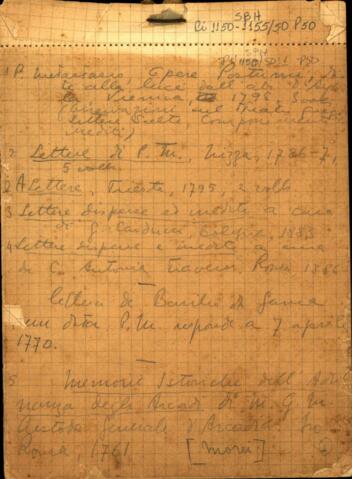 SBH
Ri 1150-1155/50 P50
SBH
1150/50.1 P50
1 P. Metastasio, Opere Postume, da-
te alla luce dall'ab. d'Ayala
Vienna, 1795, 3 voll.
(Osservazioni sul Teatro Greco
lettere scelte componimenti
inediti)
2 Lettere di P. M., Nizza, 1786-7,
5 voll.
2A Lettere, Trieste, 1795, 2 voll.
3 Lettere disperse ed inedite a cura
di G. Carducci, Bologna, 1883
4 Lettere disperse e inedite a cura
di C. Antona Traversi, Roma 1886
lettera de Basilio da Gama
sem data P. M. responde a 7 aprile
1770.
5 Memorie Istoriche dell'Adu-
nanza degli Arcadi di M. G. M.
Custode Generale d'Arcadia
Roma, 1761 [Morei]